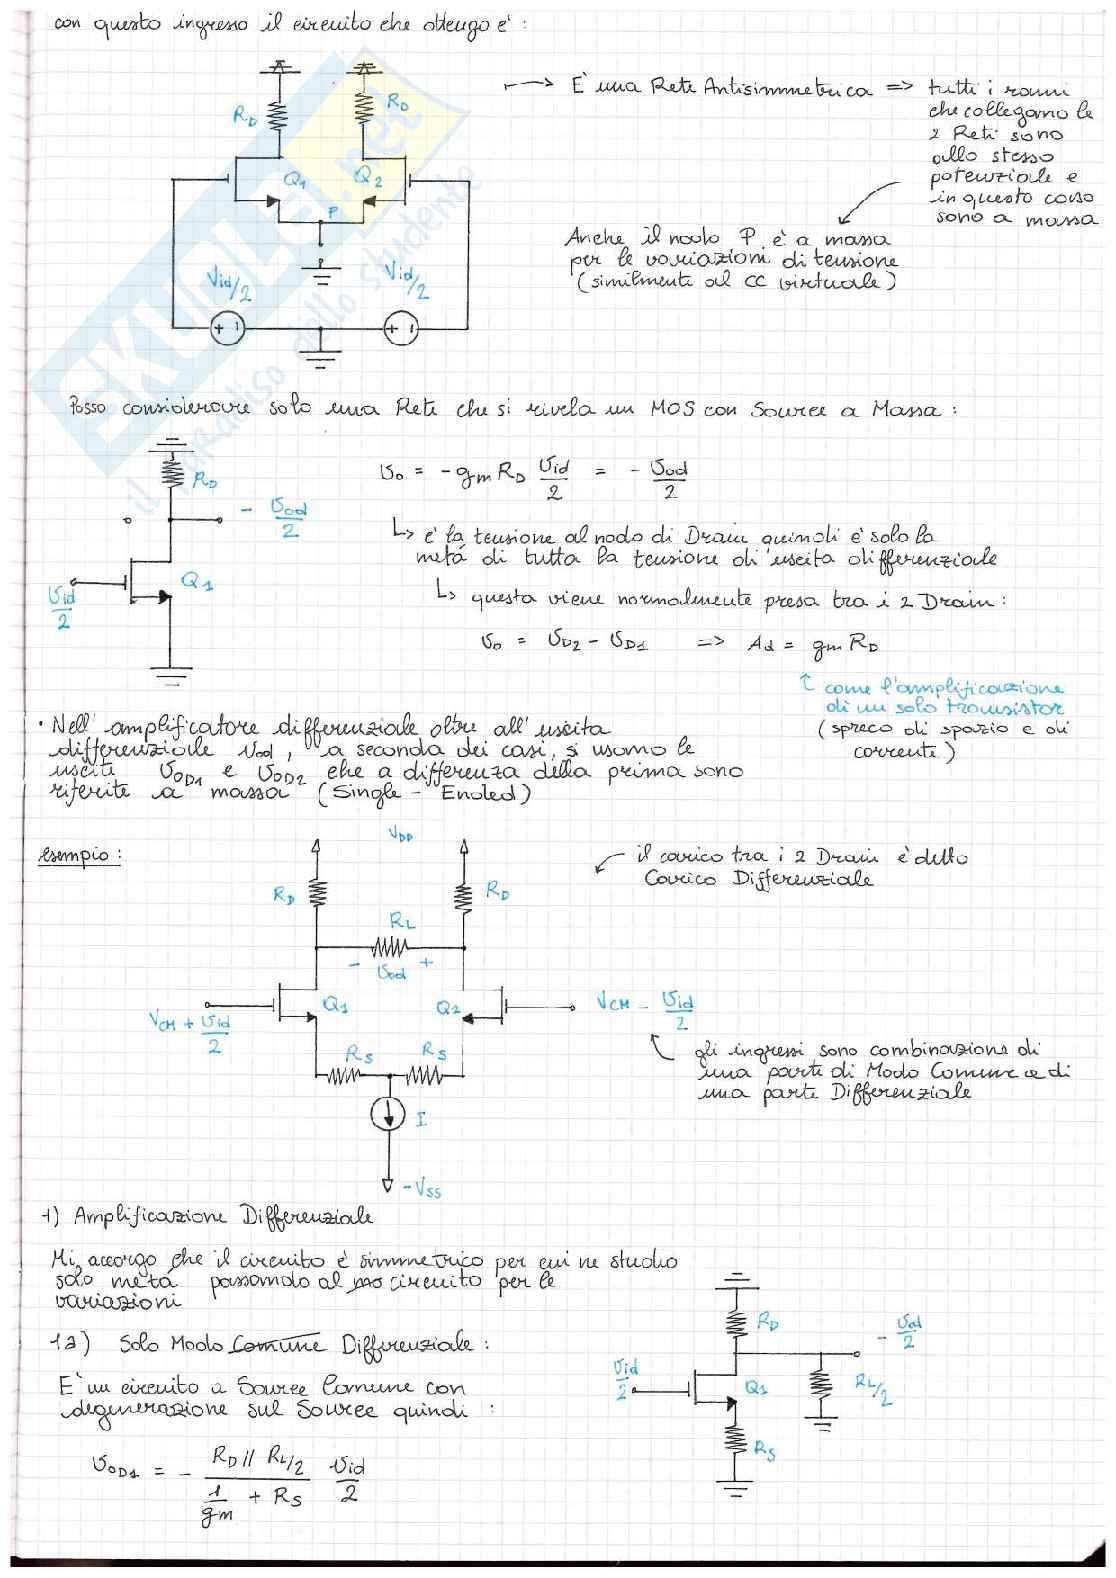 con questo ingresso il circuito che ottengo è :
R_D
R_D
Q1
Q2
P
Vid/2
Vid/2
+ -
+ -
→ È una Rete Antisimmetrica => tutti i rami
che collegano le
2 Reti sono
allo stesso
potenziale e
in questo caso
sono a massa
Anche il nodo P è a massa
per le variazioni di tensione
(similmente al CC virtuale)
SKUOLA.net
il paradiso dello studente
Posso considerare solo una Rete che si rivela un MOS con Source a Massa :
R_D
- vod/2
Q1
vid/2
vo = - gm R_D vid/2 = - vod/2
↳ è la tensione al nodo di Drain quindi è solo la
metà di tutta la tensione di uscita differenziale
↳ questa viene normalmente presa tra i 2 Drain :
vo = vD2 - vD1 => Ad = gm R_D
↑ come l'amplificazione
di un solo transistor
(spreco di spazio e di
corrente)
• Nell' amplificatore differenziale oltre all' uscita
differenziale vod , a seconda dei casi, si usano le
uscite vOD1 e vOD2 che a differenza della prima sono
riferite a massa (Single - Ended)
esempio :
VDD
R_D
R_D
R_L
- vod +
Q1
Q2
VCM + vid/2
VCM - vid/2
R_S
R_S
I
-VSS
il carico tra i 2 Drain è detto
Carico Differenziale
gli ingressi sono combinazione di
una parte di Modo Comune e di
una parte Differenziale
1) Amplificazione Differenziale
Mi accorgo che il circuito è simmetrico per cui ne studio
solo metà passando al circuito per le
variazioni
1a) Solo Modo Comune Differenziale :
È un circuito a Source Comune con
degenerazione sul Source quindi :
vOD1 = - (R_D // R_L/2) / (1/gm + R_S) vid/2
R_D
- vod/2
vid/2
Q1
R_L/2
R_S